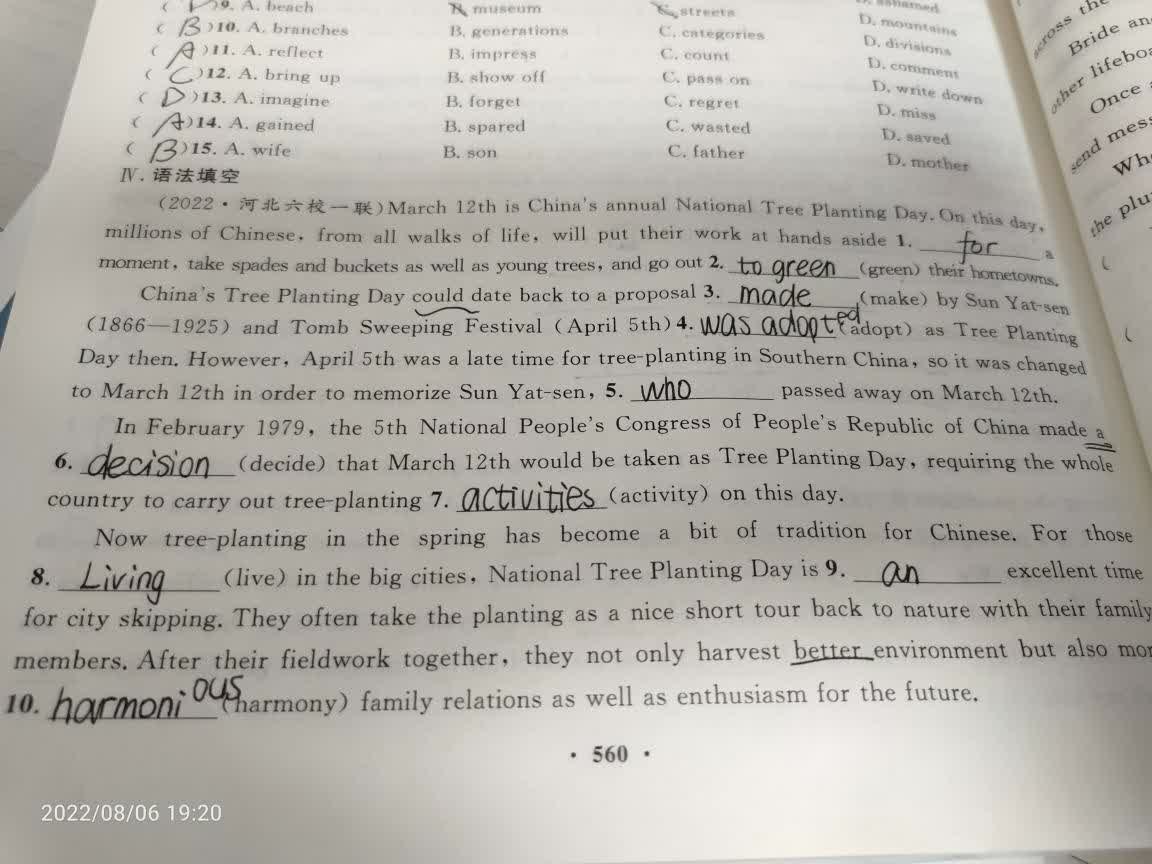 ( )9. A. beach B. museum C. streets D. ashamed
( B )10. A. branches B. generations C. categories D. mountains
( A )11. A. reflect B. impress C. count D. divisions
( C )12. A. bring up B. show off C. pass on D. comment
( D )13. A. imagine B. forget C. regret D. write down
( A )14. A. gained B. spared C. wasted D. miss
( B )15. A. wife B. son C. father D. saved
D. mother
Ⅳ. 语法填空
(2022·河北六校一联)March 12th is China's annual National Tree Planting Day. On this day,
millions of Chinese, from all walks of life, will put their work at hands aside 1. for a
moment, take spades and buckets as well as young trees, and go out 2. to green (green) their hometowns.
China's Tree Planting Day could date back to a proposal 3. made (make) by Sun Yat-sen
(1866—1925) and Tomb Sweeping Festival (April 5th) 4. was adopted (adopt) as Tree Planting
Day then. However, April 5th was a late time for tree-planting in Southern China, so it was changed
to March 12th in order to memorize Sun Yat-sen, 5. who passed away on March 12th.
In February 1979, the 5th National People's Congress of People's Republic of China made a
6. decision (decide) that March 12th would be taken as Tree Planting Day, requiring the whole
country to carry out tree-planting 7. activities (activity) on this day.
Now tree-planting in the spring has become a bit of tradition for Chinese. For those
8. Living (live) in the big cities, National Tree Planting Day is 9. an excellent time
for city skipping. They often take the planting as a nice short tour back to nature with their family
members. After their fieldwork together, they not only harvest better environment but also mor
10. harmonious (harmony) family relations as well as enthusiasm for the future.
· 560 ·
across the
Bride an
other lifeboa
Once
send mess
Wh
the plu
(
(
2022/08/06 19:20